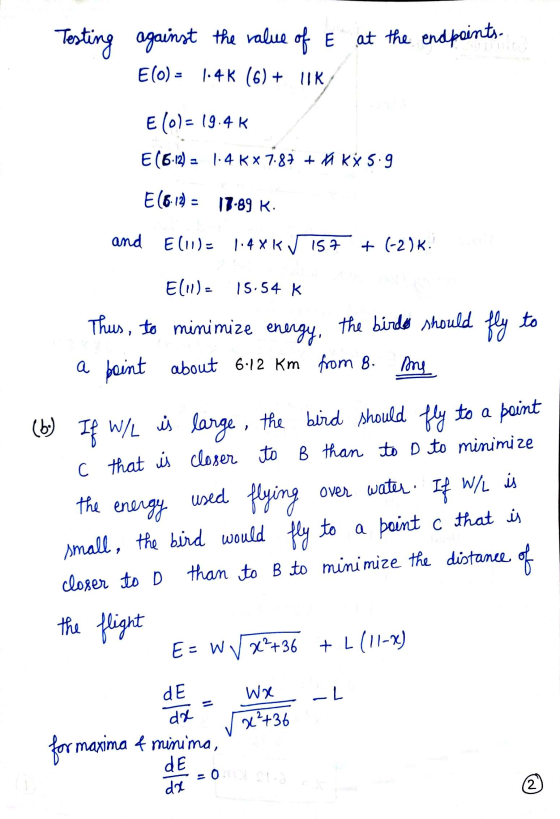 Testing against the value of E at the endpoints.
E(0) = 1.4K (6) + 11K
E(0) = 19.4 K
E(6.12) = 1.4 K x 7.87 + K x 5.9
E(6.12) = 17.89 K.
and E(11) = 1.4 x K √157 + (-2)K.
E(11) = 15.54 K
Thus, to minimize energy, the bird should fly to
a point about 6.12 Km from B. Ans
(b) If W/L is large, the bird should fly to a point
C that is closer to B than to D to minimize
the energy used flying over water. If W/L is
small, the bird would fly to a point C that is
closer to D than to B to minimize the distance of
the flight
E = W √x²+36 + L (11-x)
dE/dx = Wx/√x²+36 - L
for maxima & minima,
dE/dx = 0
2